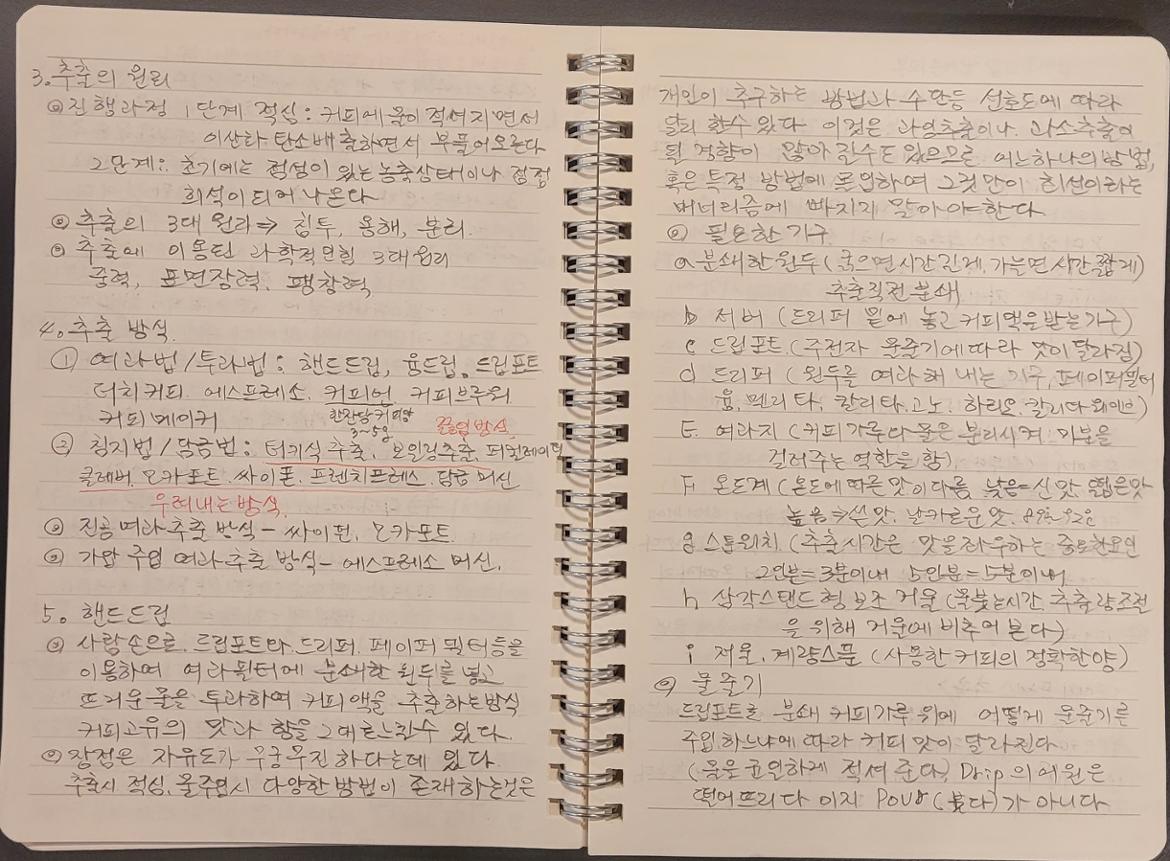 3. 추출의 원리
◎ 진행과정 1단계 적심 : 커피에 물이 적셔지면서
이산화 탄소배출하면서 부풀어오른다
2단계 : 초기에는 점성이 있는 농축상태이나 점점
희석이 되어 나온다
◎ 추출의 3대 원리 ⇒ 침투, 용해, 분리
◎ 추출에 이용된 과학적인힘 3대원리
중력, 표면장력, 팽창력
4. 추출 방식.
① 여과법/투과법 : 핸드드립, 융드립. 드립포트
더치커피. 에스프레소. 커피언. 커피브루워
커피메이커 한잔당커피양 3~5g 끓임방식
② 침지법/담금법 : 터키식 추출, 보일링추출, 퍼컬레이터
클레버. 모카포트. 싸이폰. 프렌치프레스. 담금 머신
우려내는방식.
◎ 진공여과 추출 방식 - 싸이펀, 모카포트.
◎ 가압 주입 여과 추출 방식 - 에스프레소 머신.
5. 핸드드립
◎ 사람손으로. 드립포트와. 드리퍼. 페이퍼 필터등을
이용하여 여과필터에 분쇄한 원두를 넣고
뜨거운물을 투과하여 커피액을 추출하는방식
커피고유의 맛과 향을 그대로느낄수 있다.
◎ 장점은 자유도가 무궁무진하다는데 있다.
추출시 적심. 물주입시 다양한 방법이 존재하는것은
개인이 추구하는 방법과 수단등 선호도에 따라
달리 할수 있다 이것은 과잉추출이나. 과소추출이
될 경향이 많아 질수도 있으므로 어느하나의 방법,
혹은 특정 방법에 몰입하여 그것만이 최선이라는
매너리즘에 빠지지 말아야한다
◎ 필요한 기구
a 분쇄한원두 (굵으면시간길게, 가늘면 시간짧게)
추출직전 분쇄
b 서버 (드리퍼 밑에 놓고 커피액을받는기구)
c 드립포트 (주전자 물줄기에따라 맛이달라짐)
d 드리퍼 (원두를 여과해 내는 기구, 페이퍼필터
융, 멜리타, 칼리타. 고노. 하리오. 칼리타웨이브)
E. 여과지 (커피가루와 물은 분리시켜 미분을
걸러주는 역할을 함)
F 온도계 (온도에 따른 맛이다름, 낮음=신맛, 떫은맛
높음⇒쓴맛, 날카로운맛.
g 스톱워치 (추출시간은 맛을좌우하는 중요한요인
2인분=3분이내 5인분=5분이내
h 삼각스탠드형 보조 거울 (물붓는시간, 추출량조절
을 위해 거울에 비추어 본다)
i 저울. 계량스푼 (사용한 커피의 정확한양)
◎ 물줄기
드립포트로 분쇄 커피가루 위에 어떻게 물줄기를
주입하느냐에 따라 커피 맛이 달라진다
(물을 균일하게 적셔 준다) Drip의 어원은
떨어뜨리다 이지 Pour(붓다)가 아니다